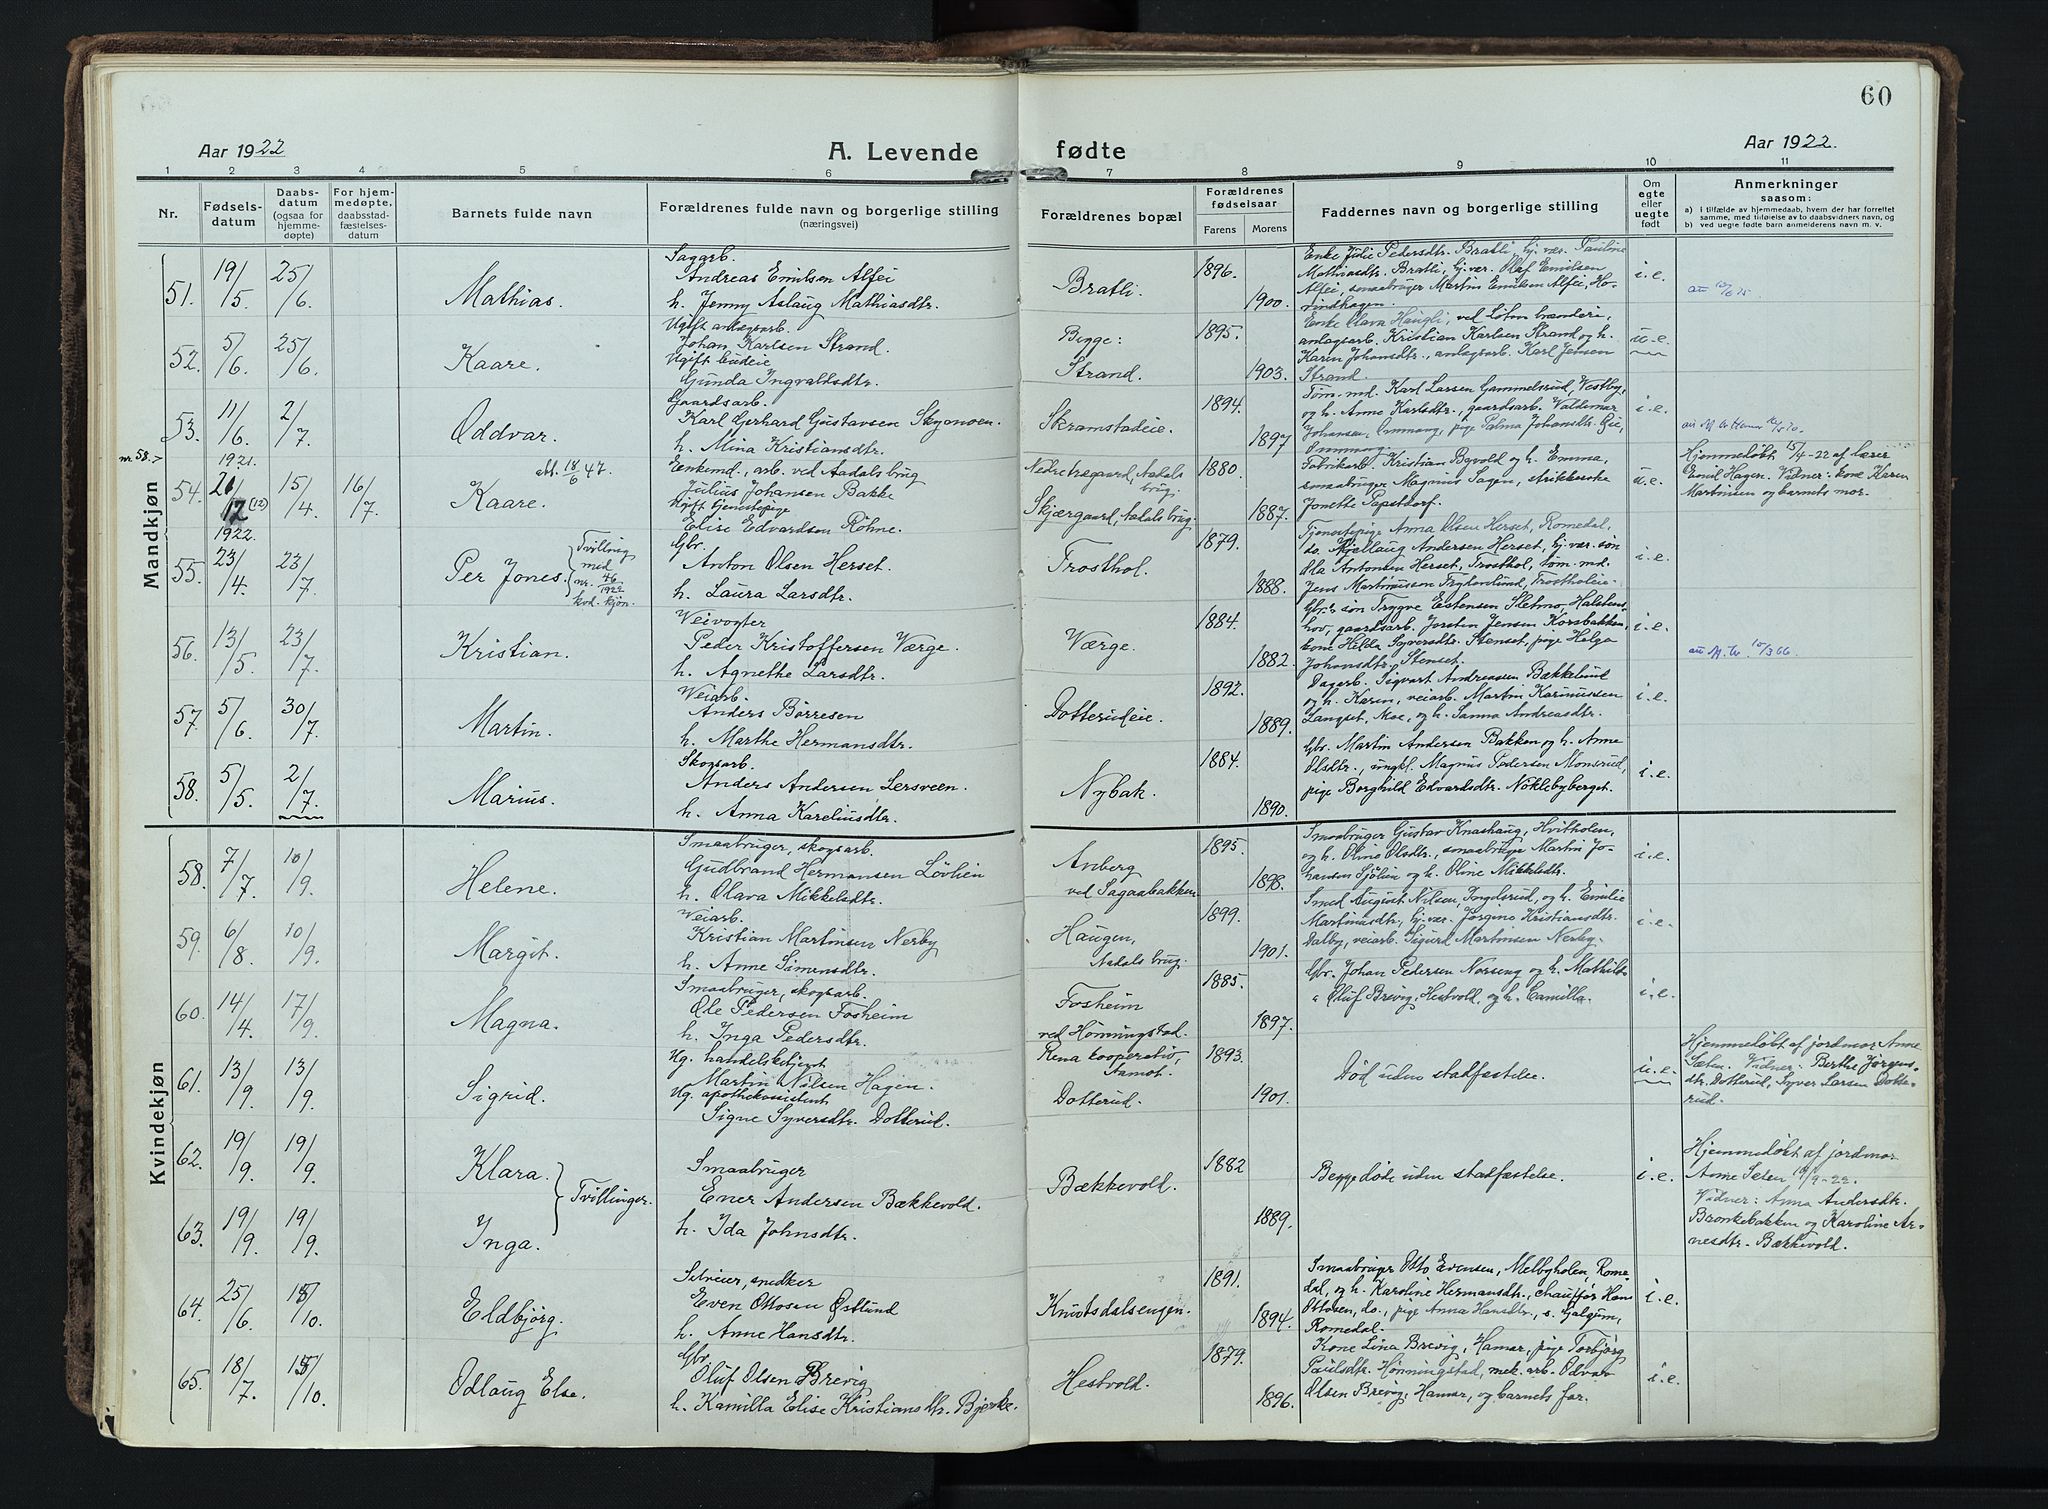 60
Aar 1922
A. Levende
fødte
Aar 1922.
1 2 3 4 5 6 7 8 9 10 11
Nr.
Fødselsdatum
Daabsdatum (ogsaa for hjemmedøpte)
For hjemmedøpte, daabsstadfæstelsesdatum
Barnets fulde navn
Forældrenes fulde navn og borgerlige stilling
(næringsvei)
Forældrenes bopæl
Forældrenes fødselsaar
Farens Morens
Faddernes navn og borgerlige stilling
Om egte eller uegte født
Anmerkninger saasom:
a) i tilfælde av hjemmedaab, hvem der har forrettet samme, med tilføielse av to daabsvidners navn, og
b) ved uegte fødte barn anmelderens navn m. v.
Mandkjøn
51. 19/5 25/6 Mathias.
Sagarb.
Andreas Emilsen Alfei
h. Jenny Aslaug Mathiasdtr.
Bratli.
1896. 1900.
Enke Julie Pedersdtr. Bratli, hj. vær. Pauline
Mathiasdtr. Bratli, hj. vær. Olaf Emilsen
Alfei, smaabruger Martin Emilsen Alfei,
i.e.
52. 5/6 25/6 Kaare.
Ugift anlægsarb.
Johan Karlsen Strand.
Ugift budeie
Gunda Ingvaldsdtr.
Begge:
Strand.
1895. 1903.
Enke Olava Haugli, ved Løten brænderi,
anlagsarb. Kristian Karlsen Strand og h.
Karin Johansdtr., anlagsarb. Karl Jensen
Strand.
u.e.
53. 11/6 2/7 Oddvar.
Gaardsarb.
Karl Gerhard Gustavsen Skymoen
h. Mina Kristiansdtr.
Skramstadeie.
1894. 1897
Tøm. md. Karl Larsen Gammelsrud, Vestby,
og h. Anne Karlsdtr., gaardsarb. Valdemar
Johansen, Ommang, pige Palma Johansdtr.
Ommang.
i.e.
nr. 58.>
1921.
54. 21/12 (12) 15/4 16/7 Kaare.
att. 18/6 47.
Enkemd., arb. ved Aadals brug
Julius Johansen Bakke
Ugift tjenestepige
Elise Edvardsen Röhne.
Nedre Aadals brug.
Skjærgaard, Aadals brug.
1880. 1887.
Fabrikarb. Kristian Byvold og h. Emma,
smaabruger Magnus Sagen, strikkerske
Jonette Papsdorf.
u.e.
Hjemmedøbt 15/4-22 af lærer
Emil Hagen. Vidner: Kone Karen
Martinsen og barnets mor.
1922.
55. 23/4 23/7 Per Jones.
Tvilling med nr. 46 1922 kvd. kjøn.
Gbr.
Anton Olsen Herset.
h. Laura Larsdtr.
Frosthol.
1879. 1888.
Tjenestepige Anna Olsen Herset, Romedal,
do. Kjellaug Andersen Herset, hj. vær. søn
Ola Antonsen Herset, Frosthol, tøm. md.
Jens Martinussen Frydenlund, Frostholeie.
i.e.
56. 13/5 23/7 Kristian.
Veivogter
Peder Kristoffersen Værge.
h. Agnethe Larsdtr.
Værge.
1884. 1882.
Gbr.s søn Trygve Estensen Sletmo, Halstenshov,
gaardsarb. Torsten Jensen Korsbakken,
kone Helda Syversdtr. Stenset, pige Helga
Johansdtr. Stenset.
i.e.
57. 5/6 30/7 Martin.
Veiarb.
Anders Börresen
h. Marthe Hermansdtr.
Dotterudeie.
1892. 1889.
Dagarb. Sigvart Andreassen Bækkelund
og h. Karen, veiarb. Martin Karinussen
Langset, Moe, og h. Sanna Andreasdtr.
i.e.
58. 5/5 2/7 Marius.
Skogsarb.
Anders Andersen Lersveen.
h. Anna Kareliusdtr.
Nybak.
1884. 1890.
Gbr. Martin Andersen Bakken og h. Anne
Olsdtr., ungkl. Magnus Pedersen Monsrud,
pige Borghild Edvardsdtr. Nöklebyberget.
i.e.
Kvindekjøn
58. 7/7 10/9 Helene.
Smaabruger, skogsarb.
Gudbrand Hermansen Lövlien
h. Olava Mikkelsdtr.
Anberg
ved Sagaabakken.
1895. 1898.
Smaabruger Gustav Knashaug, Hvitholen,
og h. Olino Olsdtr., smaabruger Martin Johansen
Sjölien og h. Oline Mikkelsdtr.
i.e.
59. 6/8 10/9 Margit.
Veiarb.
Kristian Martinsen Nerby
h. Anne Simensdtr.
Haugen,
Aadals brug.
1899. 1901.
Smed August Nilsen, Ingelsrud, og h. Emilie
Martinusdtr., hj. vær. Jørgine Kristiansdtr.
Dalby, veiarb. Sigurd Martinsen Nerby.
i.e.
60. 14/4 17/9 Magna.
Smaabruger, skogsarb.
Ole Pedersen Fosheim
h. Inga Pedersdtr.
Fosheim
ved Hørmingstad.
1885. 1897.
Gbr. Johan Pedersen Norseng og h. Mathilde
" Oluf Brevig, Hestvold, og h. Camilla.
i.e.
61. 13/9 13/9 Sigrid.
Ug. handelsbetjent
Martin Nilsen Hagen.
Ug. apothekassistent
Signe Syversdtr. Dotterud.
Rena kooperativ,
Aamot.
Dotterud.
1893. 1901.
Död uden stadfæstelse.
u.e.
Hjemmedøbt af jordmor Anne
Sæten. Vidner: Berthe Jørgensdtr.
Dotterud, Syver Larsen Dotterud.
62. 19/9 19/9 Klara.
63. 19/9 19/9 Inga.
Tvillinger.
Smaabruger
Ener Andersen Bækkevold.
h. Ida Johnsdtr.
Bækkevold.
1882 1889.
Begge döde uden stadfæstelse.
i.e.
Hjemmedøbt af jordmor
Anne Seten 19/9-22.
Vidner: Anna Andersdtr.
Bronkebakken og Karoline Arnesdtr.
Bækkevold.
64. 25/6 /10. Eldbjörg.
Selveier, snedker
Even Ottosen Østlund
h. Anne Hansdtr.
Knutsdalsengen.
1891. 1894.
Smaabruger Otto Evensen, Melbyholen, Romedal,
og h. Karoline Hermansdtr., chauffør Hans
Ottosen, do., pige Anna Hansdtr., s. Galgum,
Romedal.
i.e.
65. 18/7 /10. Odlaug Else.
Gbr.
Oluf Olsen Brevig
h. Kamilla Elise Kristiansdtr. Bjerke.
Hestvold.
1879. 1896.
Kone Lina Brevig, Hamar, pige Torbjörg
Paulsdtr. Hörmingstad, mek. arb. Odvar
Olsen Brevig, Hamar, og barnets far.
i.e.